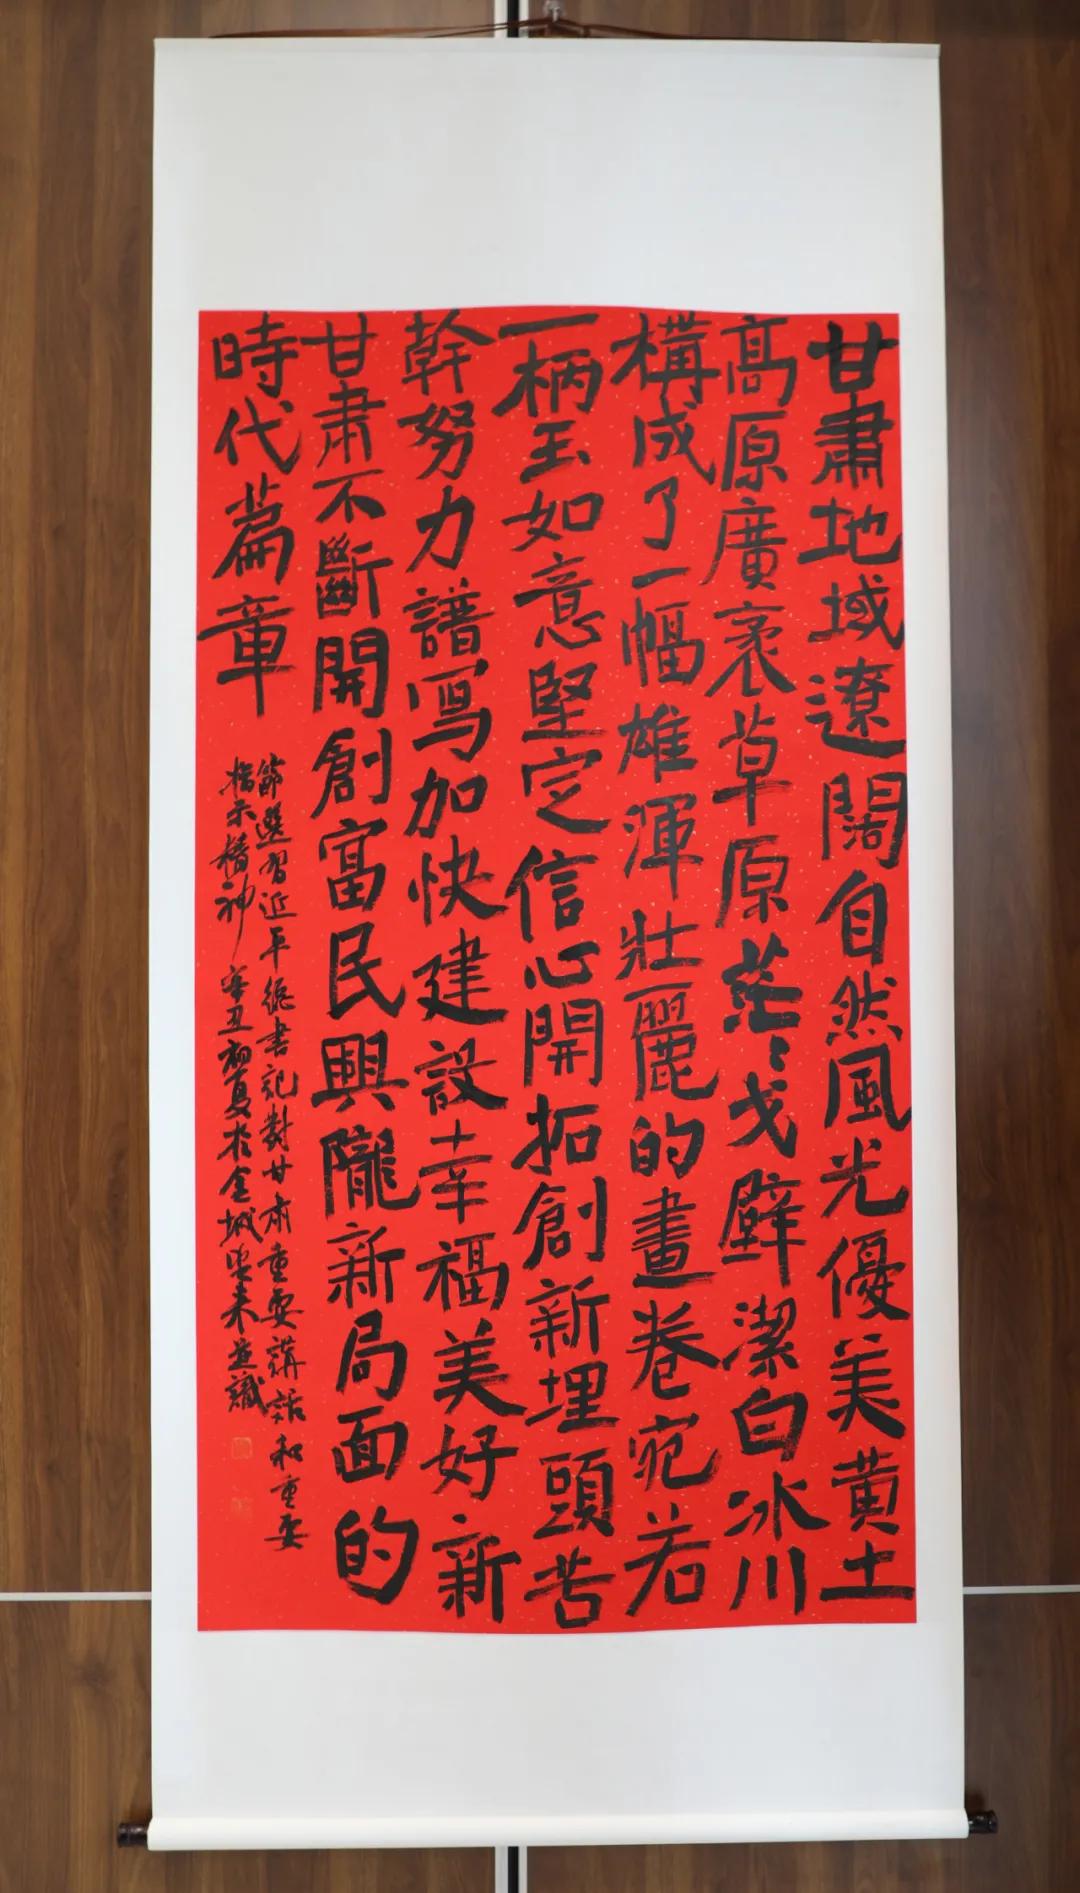 甘肅地域遼闊自然風光優美黄土
高原廣袤草原茫〻戈壁潔白冰川
構成了一幅雄渾壯麗的畫卷宛若
一柄玉如意堅定信心開拓創新埋頭苦
幹努力譜寫加快建設幸福美好新
甘肅不斷開創富民興隴新局面的
時代篇章
節選習近平總書記對甘肅重要講話和重要
指示精神辛丑初夏於金城 並識